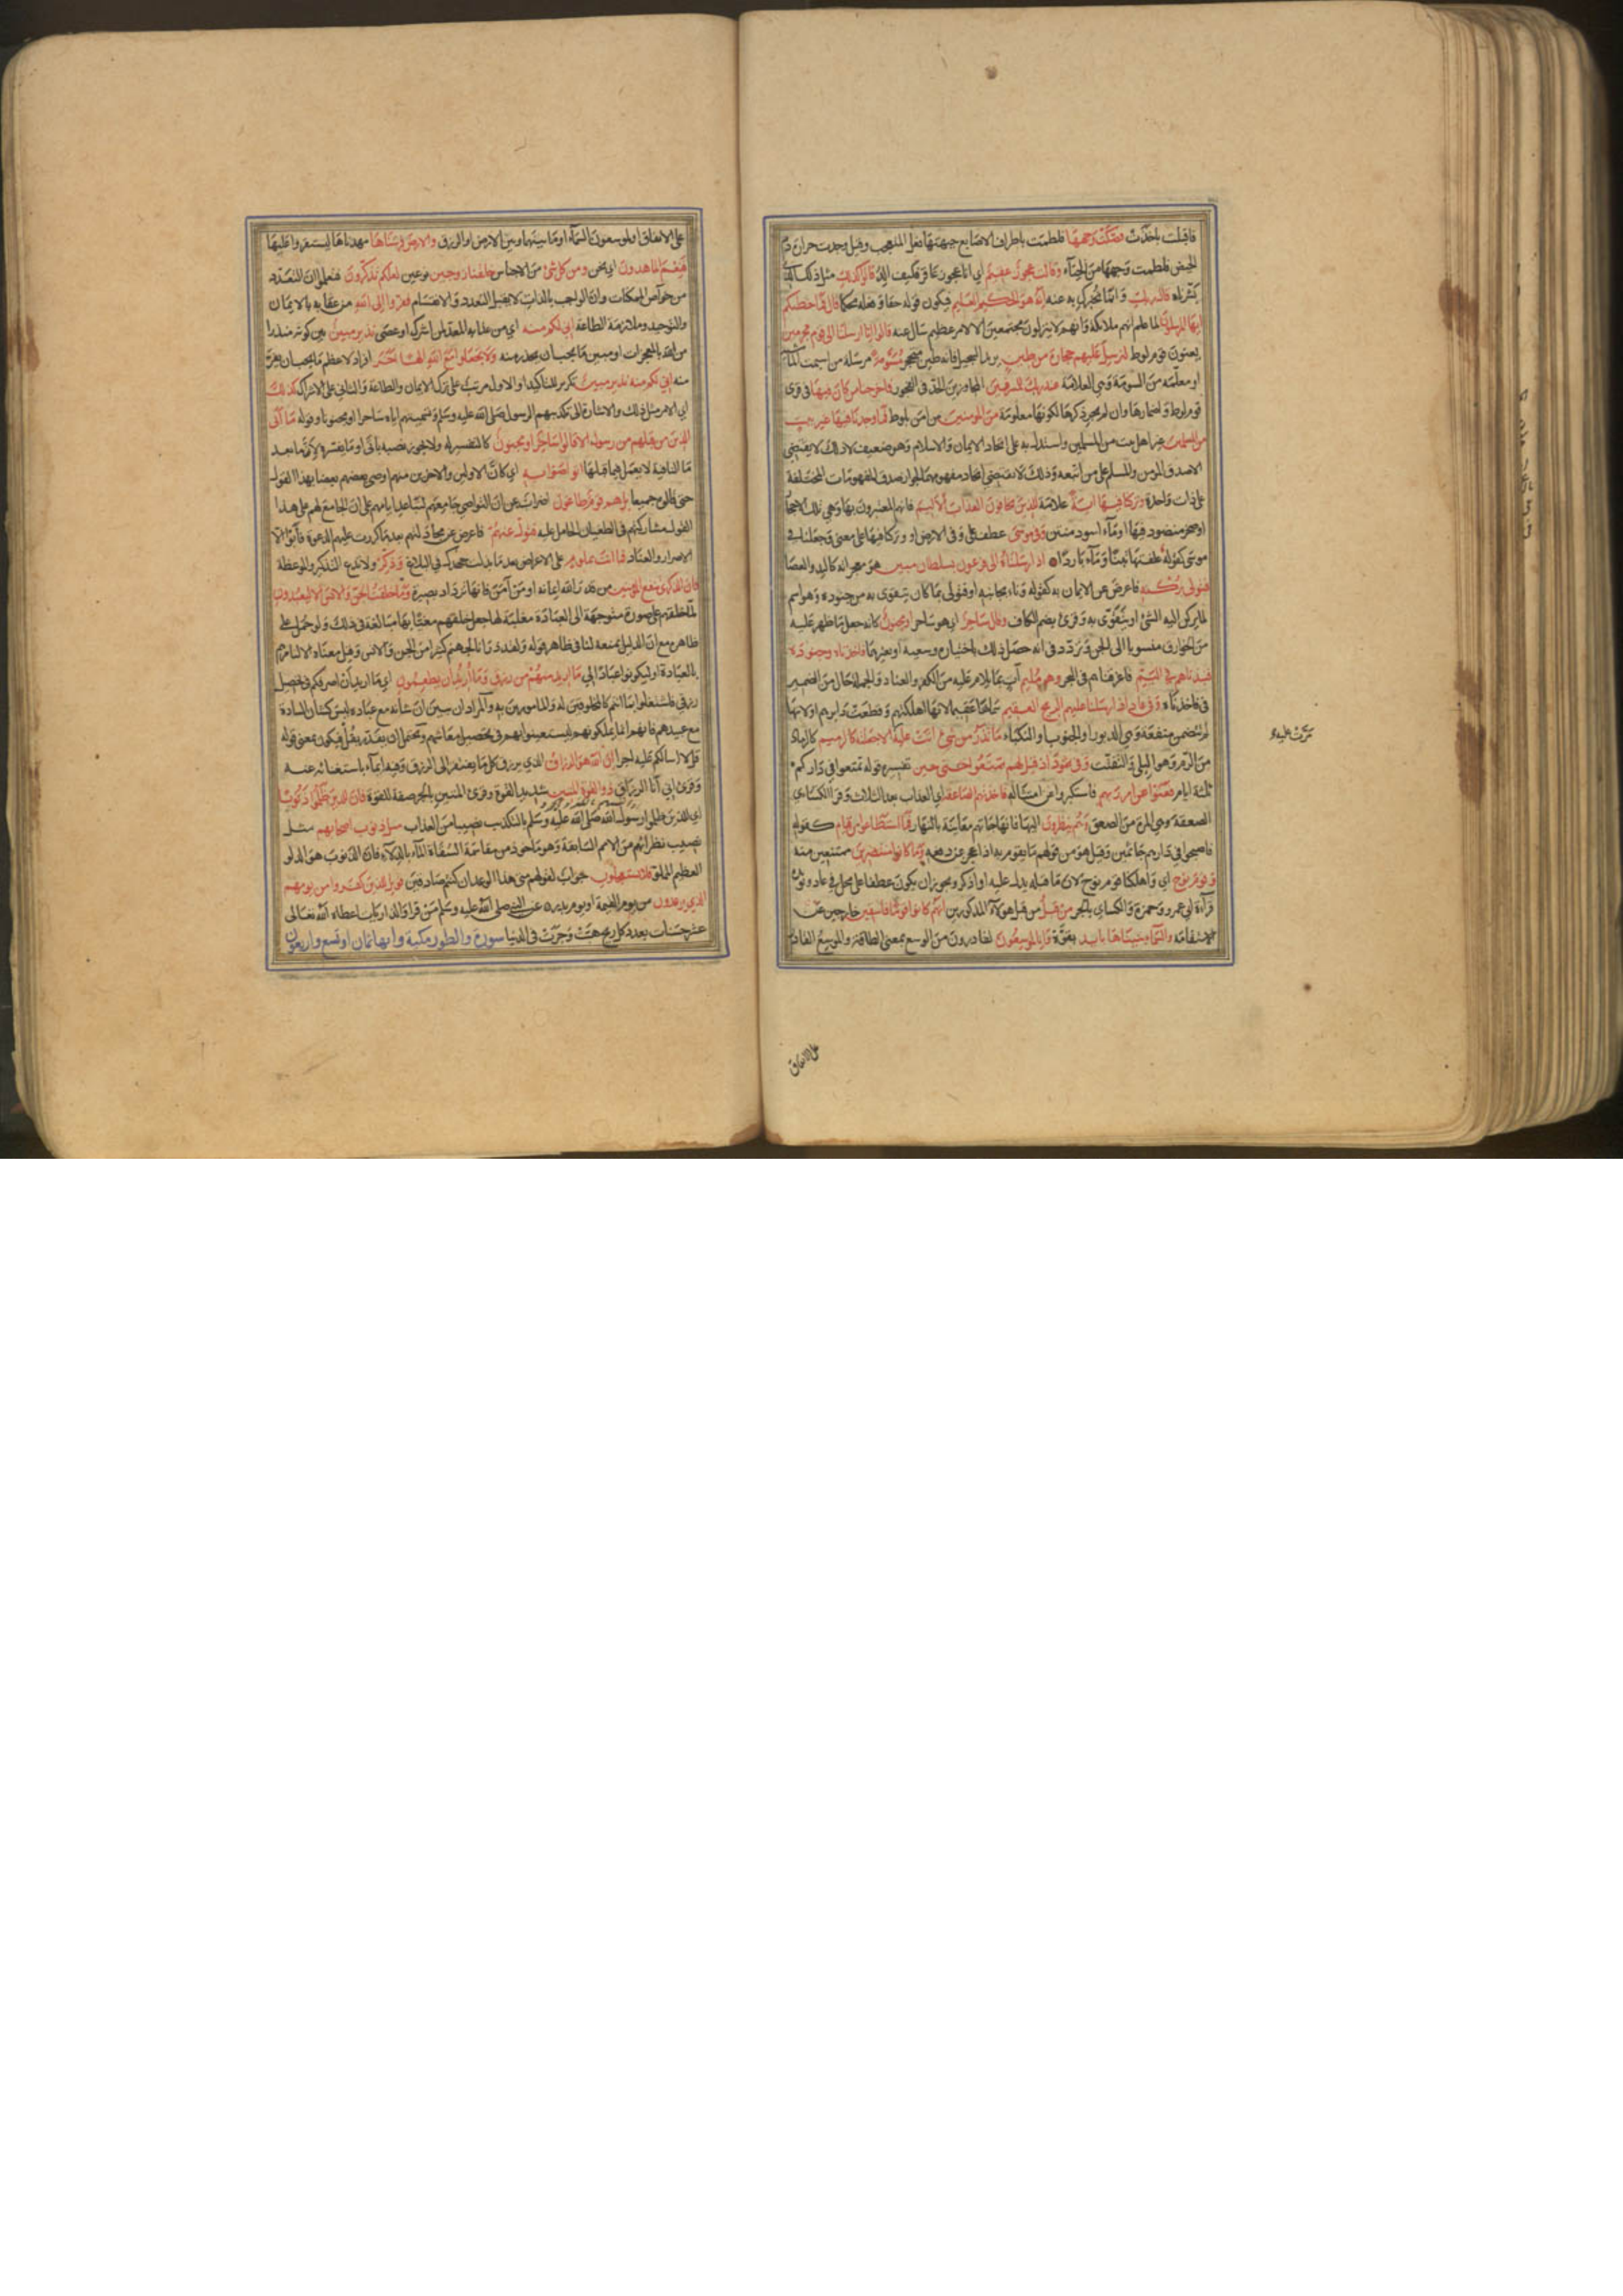 فاقبلت باخذت فصكت وجهها فلطمت باطراف الاصابع جبهتها فعل المتعجب وقيل وجدت حرارة دم
الحيض فلطمت وجهها من الحياء وقالت عجوز عقيم اي انا عجوز عاقر فكيف الد قالوا كذلك مثل ذلك الذي
بشرنا به قال ربك وانما نخبرك به عنه انه هو الحكيم العليم فيكون قوله حقا وفعله محكما قال فما خطبكم
ايها المرسلون لما علم انهم ملائكة وانهم لا ينزلون مجتمعين الا لامر عظيم سال عنه قالوا انا ارسلنا الى قوم مجرمين
يعنون قوم لوط لنرسل عليهم حجارة من طين يريد السجيل فانه طين متحجر مسومة مرسلة من اسيمت الماشية
او معلمة من السومة وهي العلامة عند ربك للمسرفين المجاوزين الحد في الفجور فاخرجنا من كان فيها في قرى
قوم لوط واضمارها وان لم يجر ذكرها لكونها معلومة من المؤمنين ممن امن بلوط فما وجدنا فيها غير بيت
من المسلمين غير اهل بيت من المسلمين واستدل به على اتحاد الايمان والاسلام وهو ضعيف لان ذلك لا يقتضي
الا صدق المؤمن والمسلم على من اتبعه وذلك لا يقتضي اتحاد مفهومهما لجواز صدق المفهومات المختلفة
على ذات واحدة وتركنا فيها اية علامة للذين يخافون العذاب الاليم فانهم المعتبرون بها وهي تلك الاحجار
او صخر منضود فيها او ماء اسود منتن وفي موسى عطف على وفي الارض او وتركنا فيها على معنى وجعلنا في
موسى كقوله علفتها تبنا وماء باردا اذ ارسلناه الى فرعون بسلطان مبين هو معجزاته كاليد والعصا
فتولى بركنه فاعرض عن الايمان به كقوله وناء بجانبه او فتولى بما كان يتقوى به من جنوده وهو اسم
لما يركن اليه الشئ او يتقوى به وقرئ بضم الكاف وقال ساحر اي هو ساحر او مجنون كانه جعل ما ظهر عليه
من الخوارق منسوبا الى الجن وتردد في انه حصل ذلك باختياره وسعيه او بغيرهما فاخذناه وجنوده
فنبذناهم في اليم فاغرقناهم في البحر وهو مليم ات بما يلام عليه من الكفر والعناد والجملة حال من الضمير
في فاخذناه وفي عاد اذ ارسلنا عليهم الريح العقيم سماها عقيما لانها اهلكتهم وقطعت دابرهم او لانها
لم تتضمن منفعة وهي الدبور او الجنوب او النكباء ما تذر من شئ اتت عليه الا جعلته كالرميم كالرماد
من الرم وهو البلى والتفتت وفي ثمود اذ قيل لهم تمتعوا حتى حين تفسيره قوله تمتعوا في داركم
ثلثة ايام فعتوا عن امر ربهم فاستكبروا عن امتثاله فاخذتهم الصاعقة اي العذاب بعد الثلاث وقرا الكسائي
الصعقة وهي المرة من الصعق وهم ينظرون اليها فانها جاءتهم معاينة بالنهار فما استطاعوا من قيام كقوله
فاصبحوا في دارهم جاثمين وقيل هو من قولهم ما يقوم به اذا عجز عن دفعه وما كانوا منتصرين ممتنعين منه
وقوم نوح اي واهلكنا قوم نوح لان ما قبله يدل عليه او اذكر ويجوز ان يكون عطفا على محل في عاد ويؤيده
قراءة ابي عمرو وحمزة والكسائي بالجر من قبل من قبل هؤلاء المذكورين انهم كانوا قوما فاسقين خارجين عن
الاستقامة والسماء بنيناها بايد بقوة وانا لموسعون لقادرون من الوسع بمعنى الطاقة والموسع القادر
مرت عليه
على الانفاق
على الانفاق او لموسعون السماء او ما بينها وبين الارض او الرزق والارض فرشناها مهدناها ليستقروا عليها
فنعم الماهدون اي نحن ومن كل شئ من الاجناس خلقنا زوجين نوعين لعلكم تذكرون فتعلموا ان التعدد
من خواص الممكنات وان الواجب بالذات لا يقبل التعدد والانقسام ففروا الى الله من عقابه بالايمان
والتوحيد وملازمة الطاعة اني لكم منه اي من عذابه المعد لمن اشرك او عصى نذير مبين بين كونه منذرا
من الله بالمعجزات او مبين ما يجب ان يحذر منه ولا تجعلوا مع الله الها اخر افراد لاعظم ما يجب ان يفر
منه اني لكم منه نذير مبين تكرير للتاكيد او الاول مرتب على ترك الايمان والطاعة والثاني على الاشراك كذلك
اي الامر مثل ذلك والاشارة الى تكذيبهم الرسول صلى الله عليه وسلم وتسميتهم اياه ساحرا او مجنونا وقوله ما اتى
الذين من قبلهم من رسول الا قالوا ساحر او مجنون كالتفسير له ولا يجوز نصبه باتى او ما يفسره لان ما بعد
ما النافية لا يعمل فيما قبلها اتواصوا به اي كان الاولين والاخرين منهم اوصى بعضهم بعضا بهذا القول
حتى قالوه جميعا بل هم قوم طاغون اضراب عن ان التواصي جامعهم لتباعد ايامهم على ان الجامع لهم على هذا
القول مشاركتهم في الطغيان الحامل عليه فتول عنهم فاعرض عن مجادلتهم بعد ما كررت عليهم الدعوة فابوا الا
الاصرار والعناد فما انت بملوم على الاعراض بعد ما بذلت جهدك في البلاغ وذكر ولا تدع التذكير والموعظة
فان الذكرى تنفع المؤمنين من قدر الله ايمانه او من آمن فانها تزداد بصيرة وما خلقت الجن والانس الا ليعبدون
لما خلقهم على صورة متوجهة الى العبادة مغلبة لها جعل خلقهم مغيا بها مبالغة في ذلك ولو حمل على
ظاهره مع ان الدليل يمنعه لنا في ظاهر قوله ولقد ذرانا لجهنم كثيرا من الجن والانس وقيل معناه الا لنامرهم
بالعبادة او ليكونوا عبادا لي ما اريد منهم من رزق وما اريد ان يطعمون اي ما اريد ان اصرفكم في تحصيل
رزقي فاشتغلوا بما انتم كالمخلوقين له والمامورين به والمراد ان يبين ان شانه مع عباده ليس كشان السادة
مع عبيدهم فانهم انما يملكونهم ليستعينوا بهم في تحصيل معائشهم ويحتمل ان يقدر بقل فيكون بمعنى قوله
قل لا اسالكم عليه اجرا ان الله هو الرزاق الذي يرزق كل ما يفتقر الى الرزق وفيه ايماء باستغنائه عنه
وقرئ اني انا الرزاق ذو القوة المتين شديد القوة وقرئ المتين بالجر صفة للقوة فان للذين ظلموا ذنوبا
اي للذين ظلموا رسول الله صلى الله عليه وسلم بالتكذيب نصيبا من العذاب مثل ذنوب اصحابهم مثل
نصيب نظرائهم من الامم السابقة وهو ماخوذ من مقاسمة السقاة الماء بالدلاء فان الذنوب هو الدلو
العظيم المملو فلا يستعجلون جواب لقولهم متى هذا الوعد ان كنتم صادقين فويل للذين كفروا من يومهم
الذي يوعدون من يوم القيمة او يوم بدر عن النبي صلى الله عليه وسلم من قرا والذاريات اعطاه الله تعالى
عشر حسنات بعدد كل ريح هبت وجرت في الدنيا سورة والطور مكية وايها ثمان او تسع واربعون